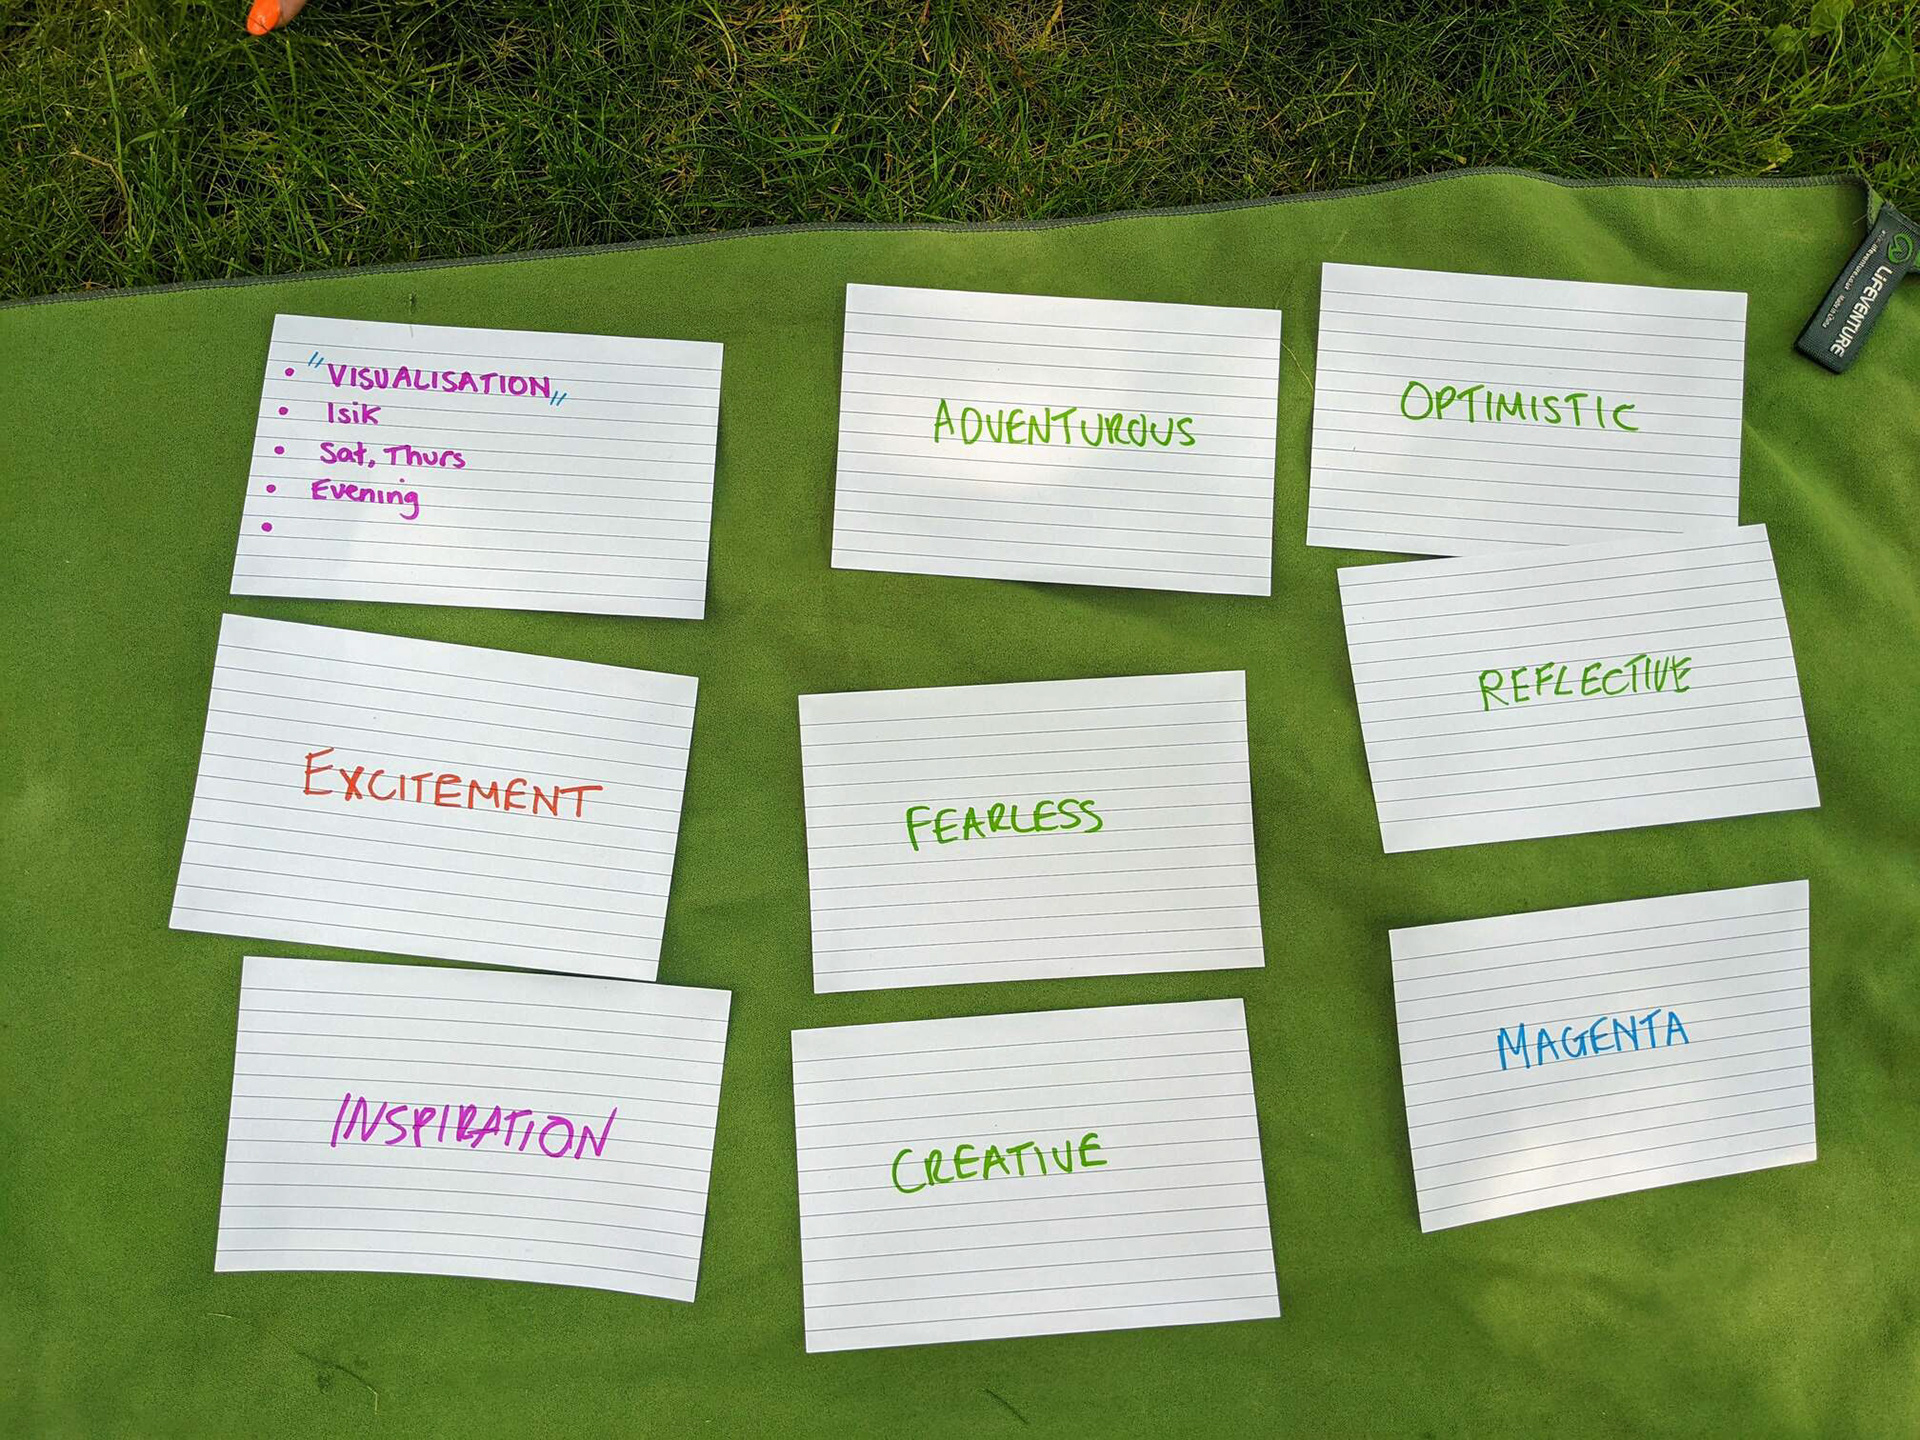 • "VISUALISATION„
• Isik
• Sat, Thurs
• Evening
•
EXCITEMENT
INSPIRATION
ADVENTUROUS
FEARLESS
CREATIVE
OPTIMISTIC
REFLECTIVE
MAGENTA
LIFEVENTURE